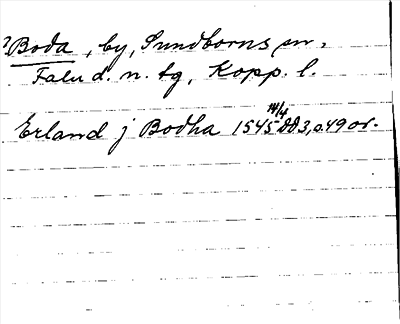 ?Boda, by, Sundborns sn.
Falu d. n. tg, Kopp. l.
Erland j Bodha 1545 14/4 DD3, o.49 or.